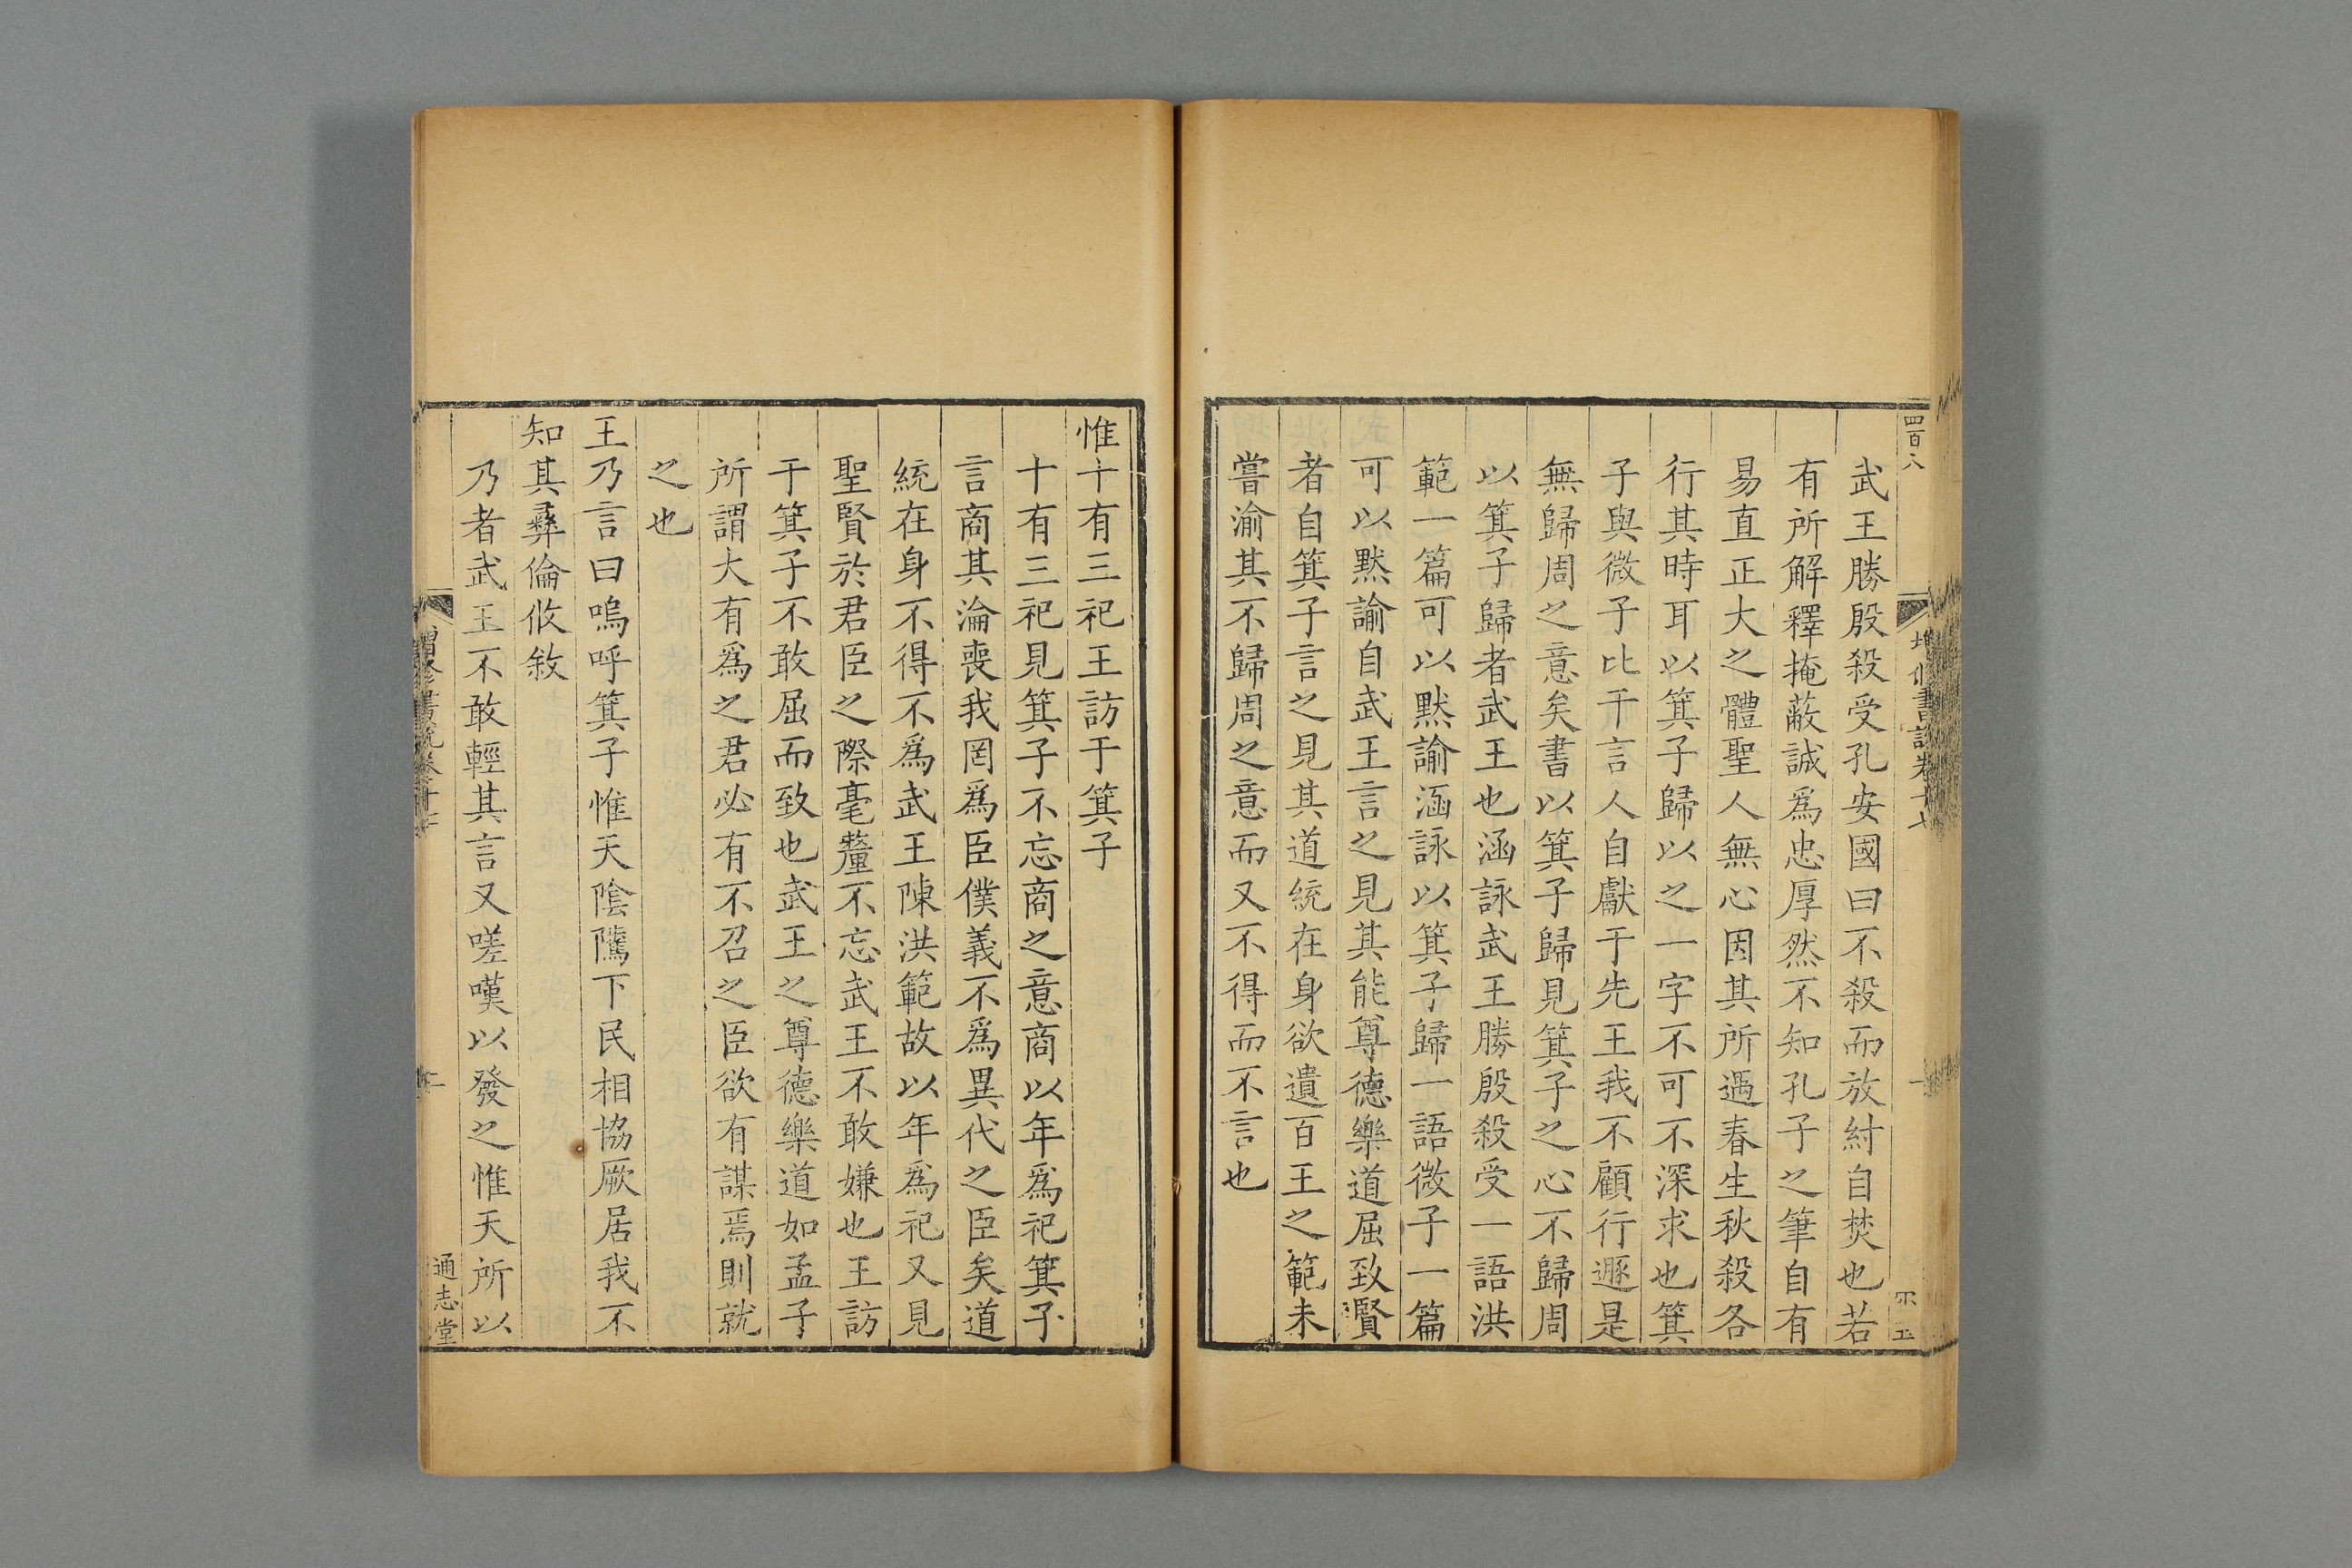 四百八
武王勝殷殺受孔安國曰不殺而放紂自焚也若
有所解釋掩蔽誠爲忠厚然不知孔子之筆自有
易直正大之體聖人無心因其所遇春生秋殺各
行其時耳以箕子歸以之一字不可不深求也箕
子與微子比干言人自獻于先王我不顧行遯是
無歸周之意矣書以箕子歸見箕子之心不歸周
以箕子歸者武王也涵詠武王勝殷殺受一語洪
範一篇可以默諭涵詠以箕子歸一語微子一篇
可以默諭自武王言之見其能尊德樂道屈致賢
者自箕子言之見其道統在身欲遺百王之範未
嘗渝其不歸周之意而又不得而不言也
惟十有三祀王訪于箕子
十有三祀見箕子不忘商之意商以年爲祀箕子
言商其淪喪我罔爲臣僕義不爲異代之臣矣道
統在身不得不爲武王陳洪範故以年爲祀又見
聖賢於君臣之際毫釐不忘武王不敢嫌也王訪
于箕子不敢屈而致也武王之尊德樂道如孟子
所謂大有爲之君必有不召之臣欲有謀焉則就
之也
王乃言曰嗚呼箕子惟天陰隲下民相協厥居我不
知其彝倫攸敘
乃者武王不敢輕其言又嗟嘆以發之惟天所以
通志堂